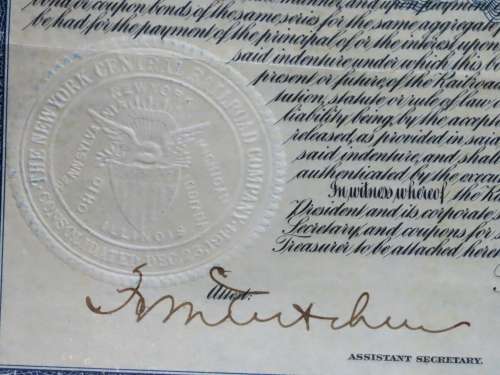 bond, or coupon bonds of the same series for the same aggregate p
be had for the payment of the principal of or the interest upon
said indenture under which this b
present or future, of the Railroa
tution, statute or rule of law.
liability being, by the accepta
released, as provided in said
said indenture, and shal
authenticated by the execu
In witness whereof, the Ra
President and its corporate
Secretary, and coupons for
Treasurer to be attached here
THE NEW YORK CENTRAL RAILROAD COMPANY
CONSOLIDATED DEC. 23, 1914
NEW YORK
PENNSYLVANIA
OHIO
MICHIGAN
INDIANA
ILLINOIS
Attest:
ASSISTANT SECRETARY.